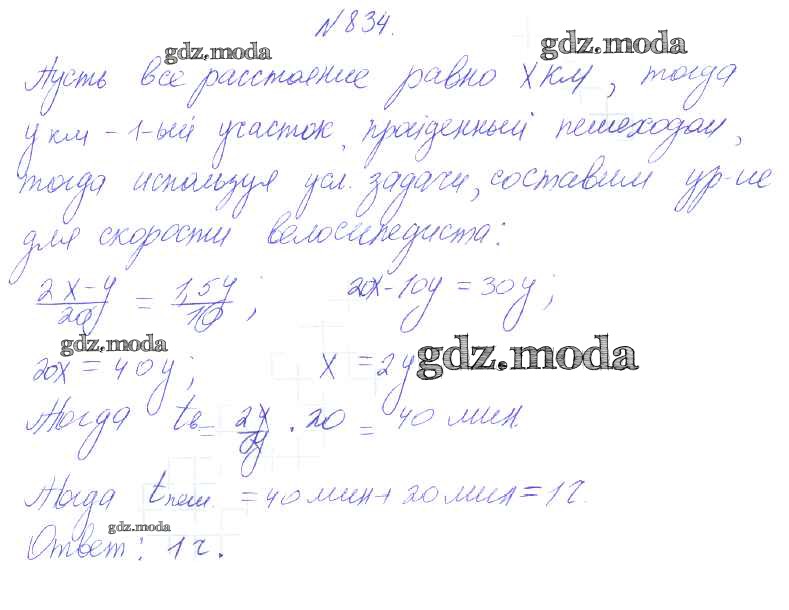 №834.
gdz.moda gdz.moda
Пусть все расстояние равно x км, тогда
y км - 1-ый участок, пройденный пешеходом,
тогда используя усл. задачи, составим ур-ие
для скорости велосипедиста:
2x-y/20 = 1,5y/10; 20x-10y=30y;
gdz.moda
20x=40y; x=2y gdz.moda
Тогда tв = 2y/y · 20 = 40 мин
Тогда tпеш. = 40 мин + 20 мин = 1 ч.
gdz.moda
Ответ: 1 ч.